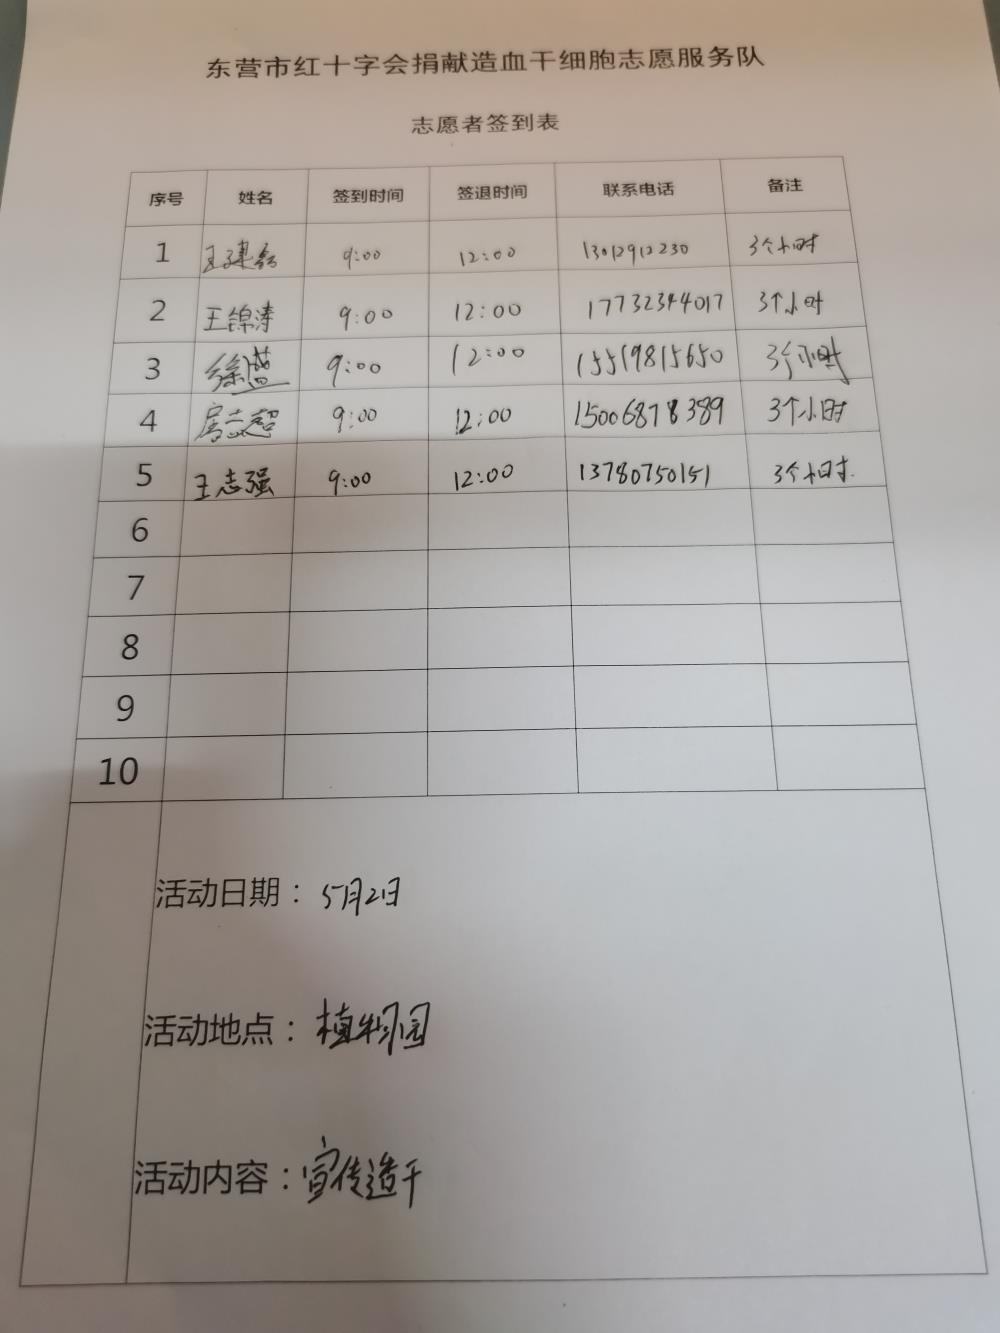 东营市红十字会捐献造血干细胞志愿服务队
志愿者签到表
序号 姓名 签到时间 签退时间 联系电话 备注
1 王建磊 9:00 12:00 13012912230 3个小时
2 王锦涛 9:00 12:00 17732344017 3个小时
3 徐 9:00 12:00 15519815650 3个小时
4 房志超 9:00 12:00 15006878389 3个小时
5 王志强 9:00 12:00 13780750151 3个小时.
6
7
8
9
10
活动日期：5月2日
活动地点：植物园
活动内容：宣传造干